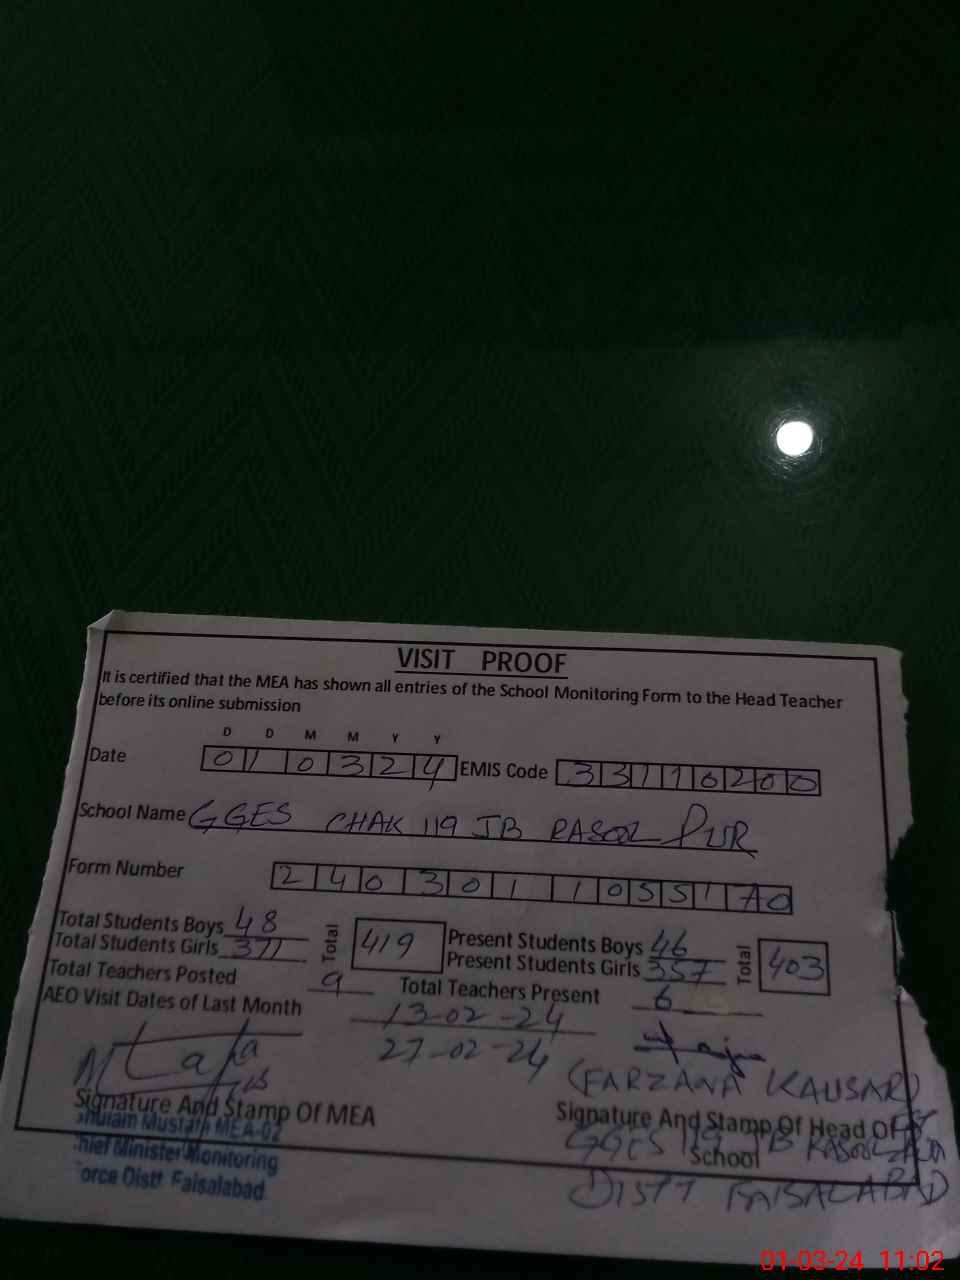 VISIT PROOF
It is certified that the MEA has shown all entries of the School Monitoring Form to the Head Teacher
before its online submission
D D M M Y Y
Date 010324 EMIS Code 33110200
School Name GGES CHAK 119 JB RASOOL PUR
Form Number 2403011055170
Total Students Boys 48 Total 419 Present Students Boys 46 Total 403
Total Students Girls 371 Present Students Girls 357
Total Teachers Posted 9 Total Teachers Present 6
AEO Visit Dates of Last Month 13-02-24
27-02-24
(FARZANA KAUSAR)
Signature And Stamp Of MEA Signature And Stamp Of Head Of
School
Ghulam Mustafa MEA-02
Chief Minister Monitoring
Force Distt Faisalabad
GGES 119 JB RASOOL PUR
DISTT FAISALABAD
01-03-24 11:02